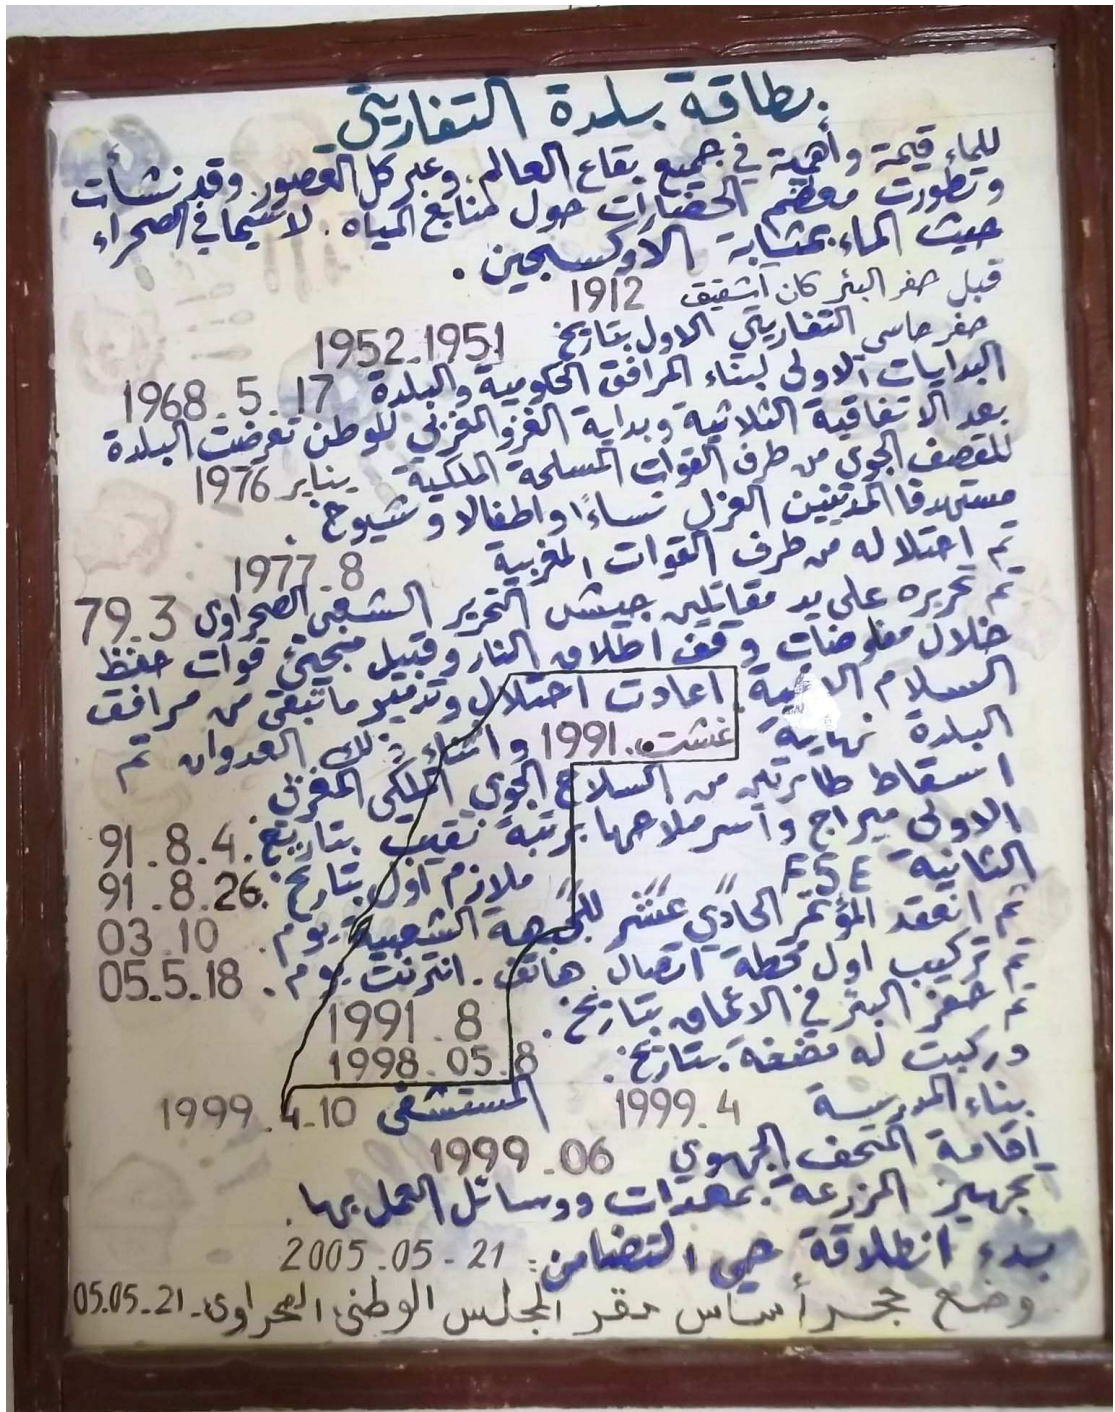 بطاقة بلدة التفاريتي
للماء قيمة وأهمية في جميع بقاع العالم. وعبر كل العصور. وقد نشأت
وتطورت معظم الحضارات حول منابع المياه. لاسيما في الصحراء
حيث الماء بمثابة الأوكسجين.
قبل حفر البئر كان آشقيق 1912
حفر حاسي التفاريتي الاول بتاريخ 1951-1952
البدايات الاولى لبناء المرافق الحكومية والبلدة 17-5-1968
بعد الاتفاقية الثلاثية وبداية الغزو المغربي للوطن تعرضت البلدة
للقصف الجوي من طرف القوات المسلحة الملكية يناير 1976
مستهدفا المدنيين العزل نساءًا واطفالا وشيوخ.
تم احتلاله من طرف القوات المغربية 8-1977
تم تحريره على يد مقاتلين جيش التحرير الشعبي الصحراوي 3-79
خلال مفاوضات وقف اطلاق النار وقبيل مجيئ قوات حفظ
السلام اعادت احتلال وتدمير ماتبقى من مرافق
البلدة نهاية غشت. 1991 واثناء ذلك العدوان تم
اسقاط طائرتين من السلاح الجوي الملكي المغربي
الاولى ميراج وأسر ملاحها برتبة نقيب بتاريخ. 4-8-91
الثانية F5E " " " ملازم اول بتاريخ. 26-8-91
تم انعقد المؤتمر الحادي عشر للجبهة الشعبية يوم. 10-03
تم تركيب اول محطة اتصال هاتف. انترنت يوم. 18-5-05
تم حفر البئر في الاعماق بتاريخ. 8-1991
وركبت له مضخة بتاريخ. 8-05-1998
بناء المدرسة 4-1999 المستشفى 10-4-1999
اقامة المتحف الجهوي 06-1999
تجهيز المزرعة بمعدات ووسائل العمل بها.
بدء انطلاقة حي التضامن: 21-05-2005
وضع حجر أساس مقر المجلس الوطني الصحراوي-21-05-05